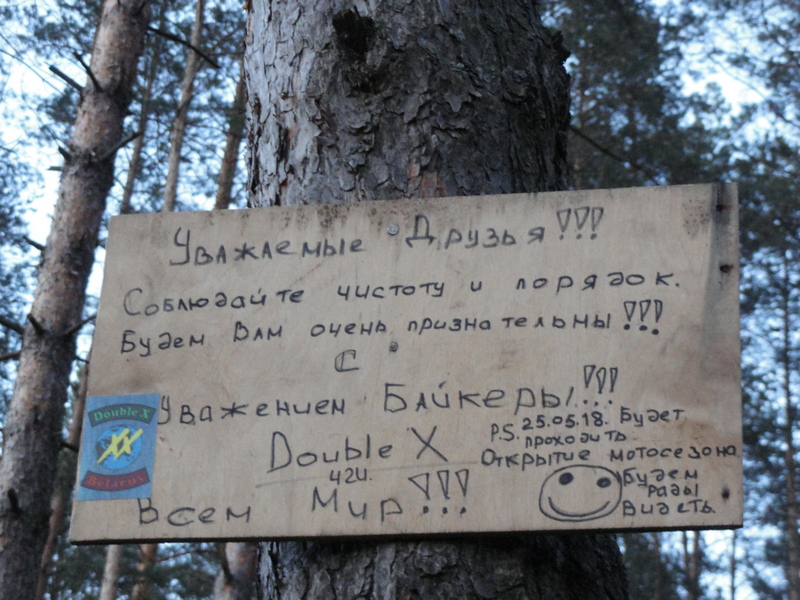 Уважаемые Друзья!!!
Соблюдайте чистоту и порядок.
Будем Вам очень признательны!!!
С
Уважением Байкеры!!!
Double X
P.S. 25.05.18. Будет
проходить
Открытие мотосезона
Будем
рады
видеть.
Всем Мир!!!
Double X
XX
Belarus